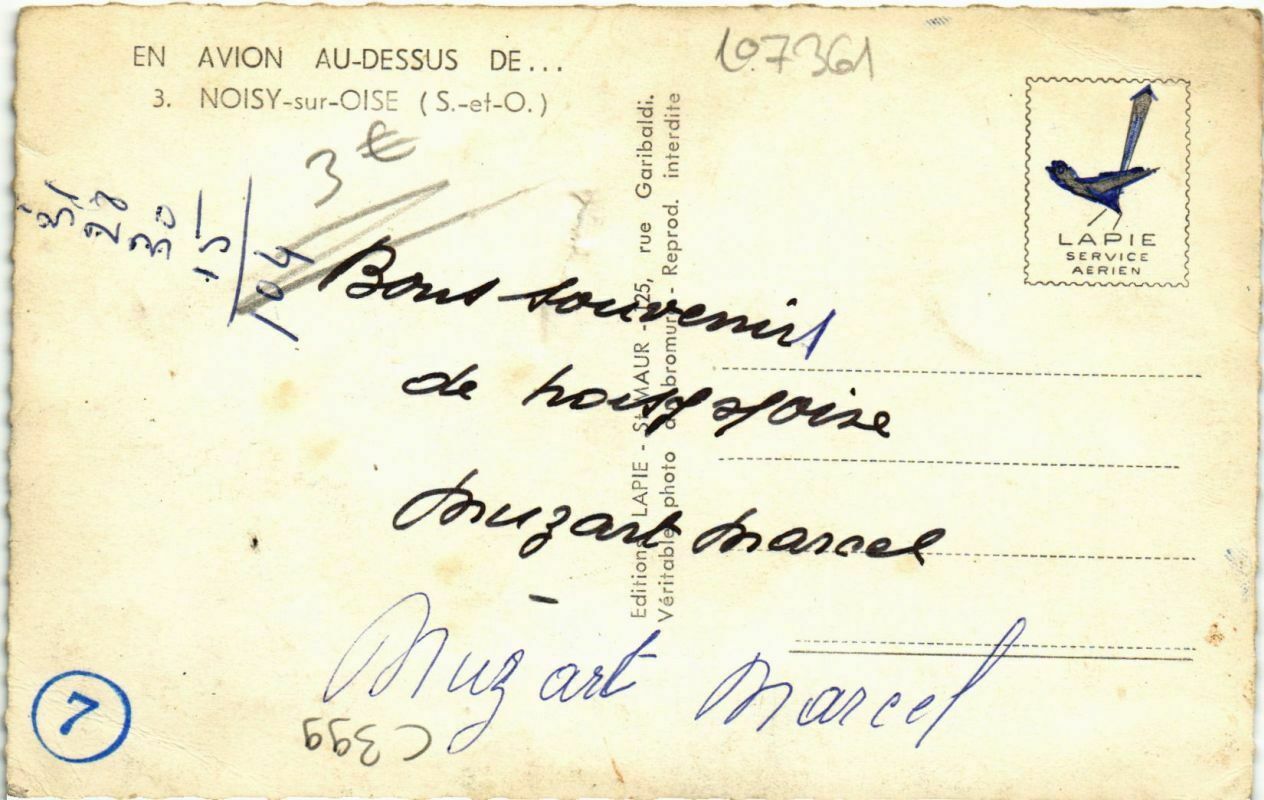 EN AVION AU-DESSUS DE...
3. NOISY-sur-OISE (S.-et-O.)
107361
LAPIE
SERVICE
AERIEN
3 €
31
28
30
15
104
Editions LAPIE - St-MAUR - 125, rue Garibaldi.
Véritable photo au bromure - Reprod. interdite
Bons souvenirs
de noisy s/oise
Muzart Marcel
Muzart Marcel
C399
7